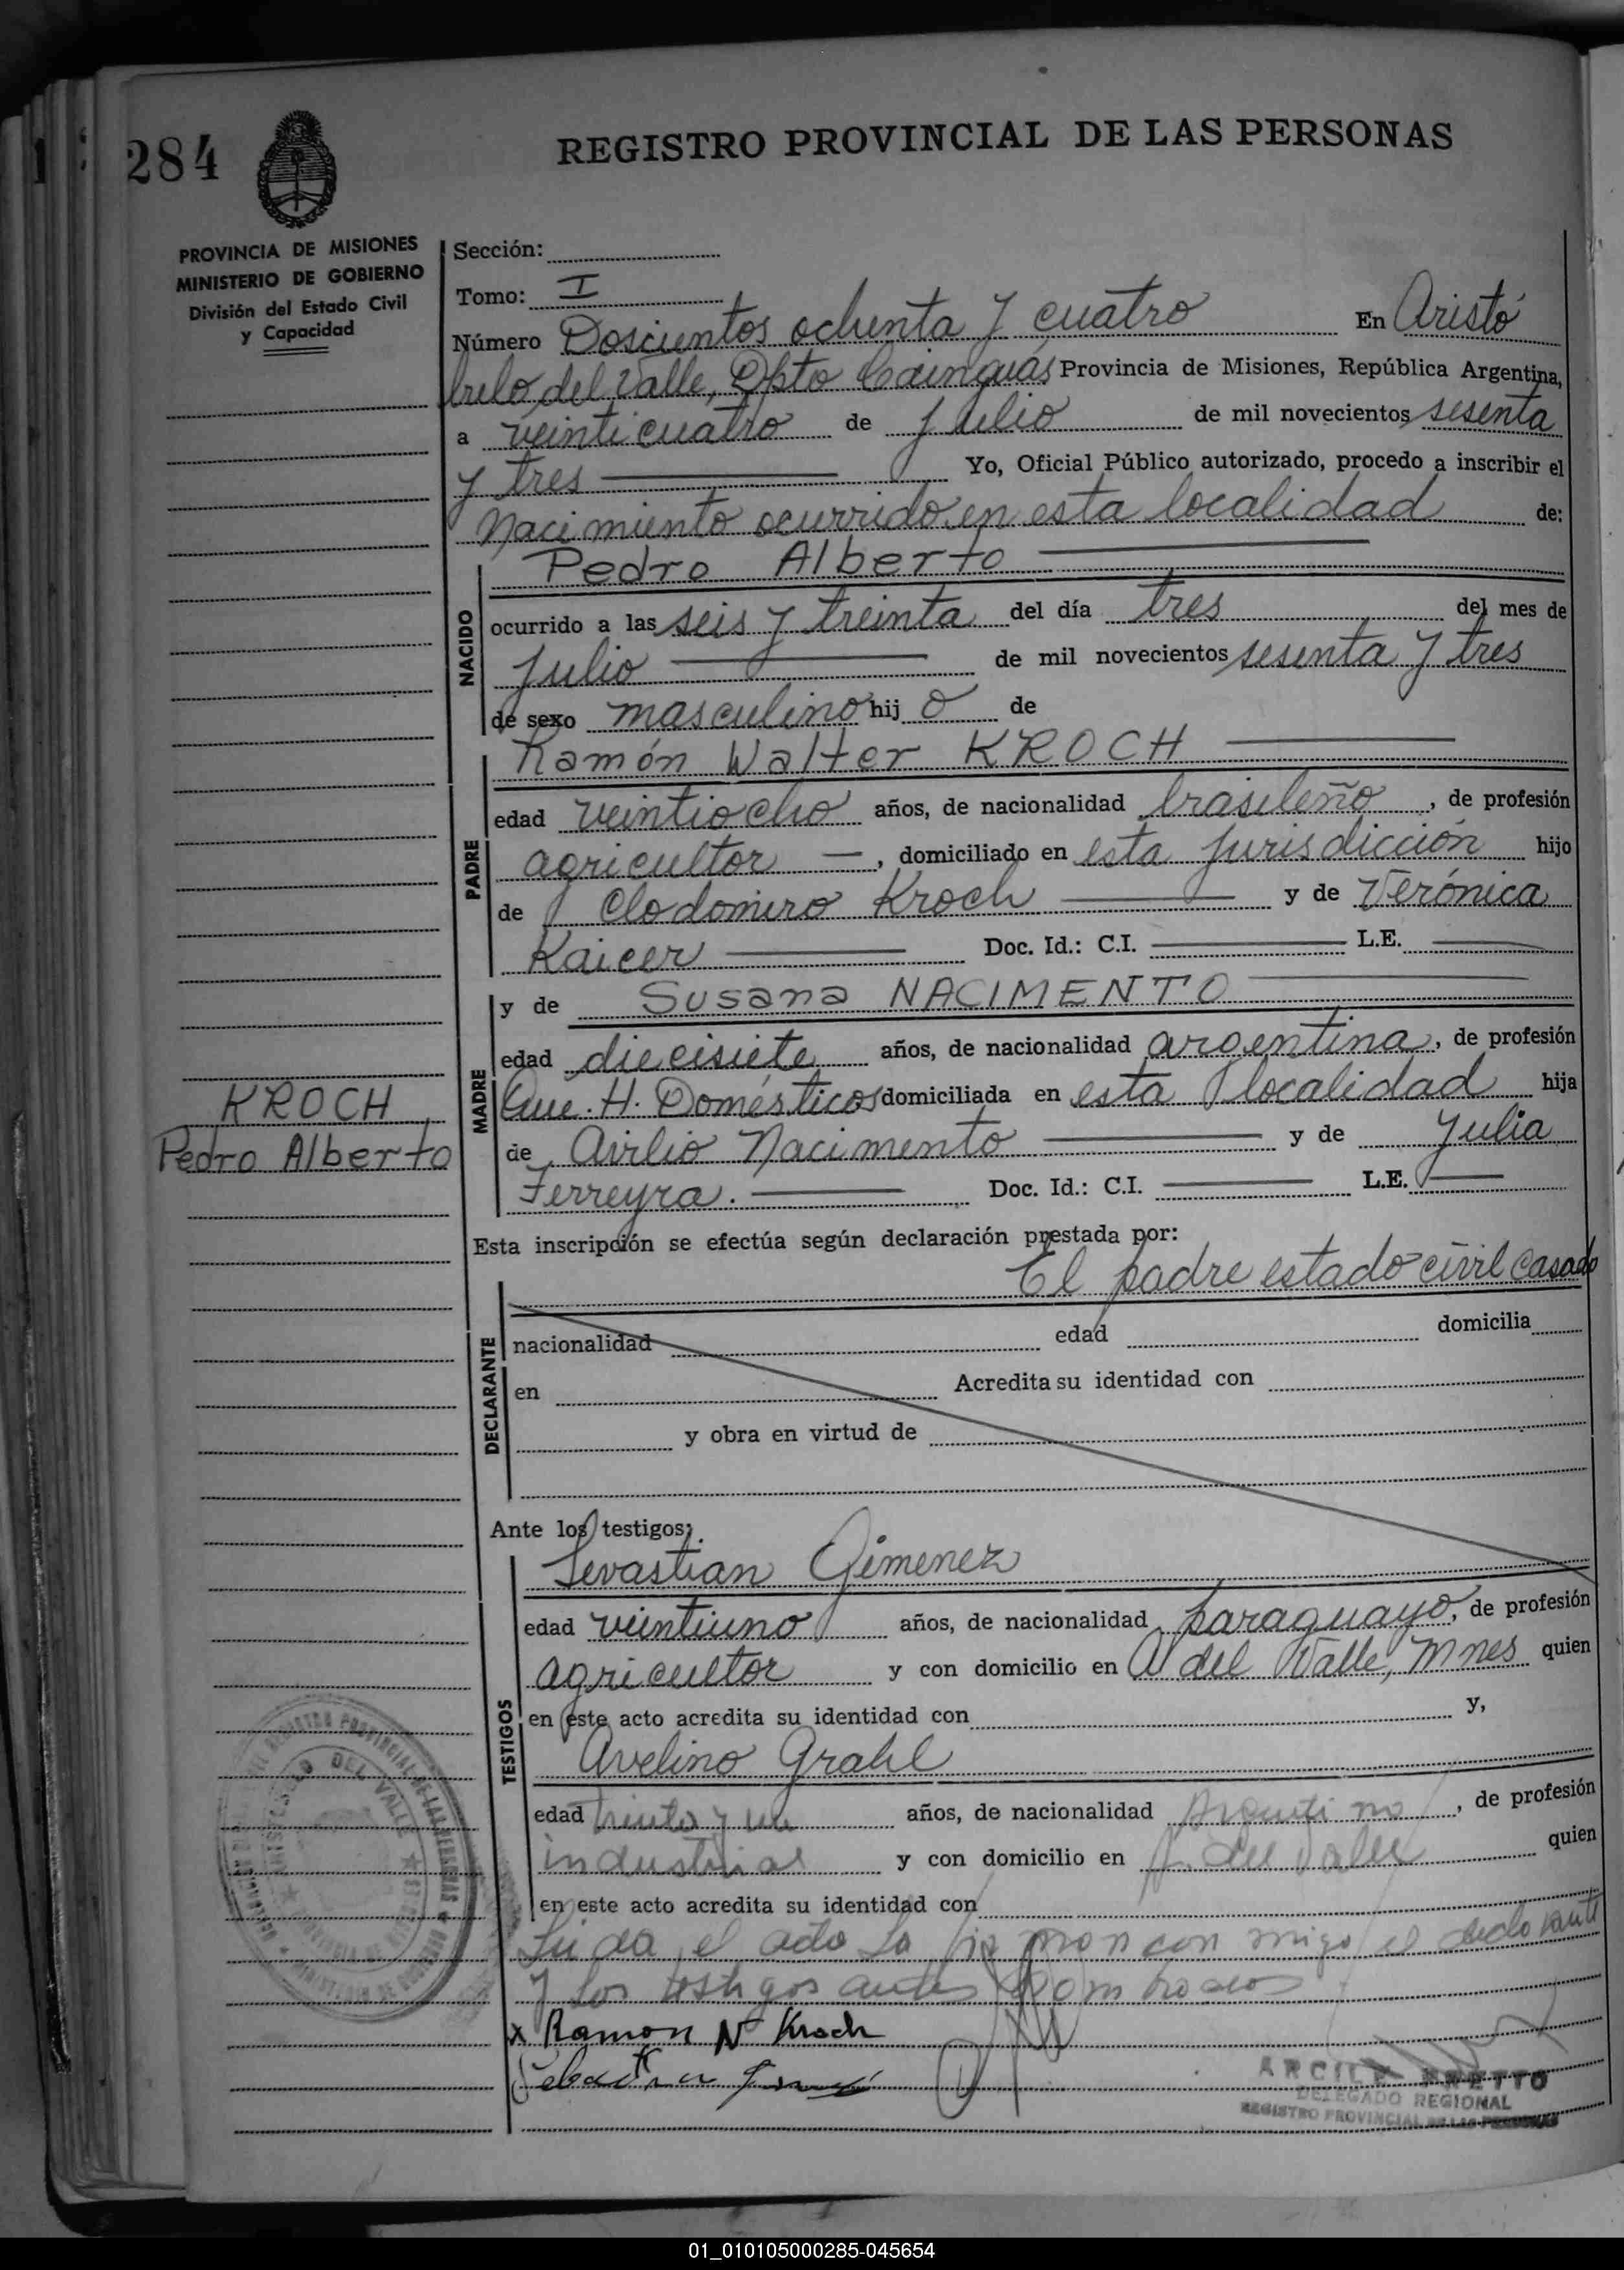 284
REGISTRO PROVINCIAL DE LAS PERSONAS
PROVINCIA DE MISIONES
MINISTERIO DE GOBIERNO
División del Estado Civil
y Capacidad
Sección:
Tomo: I
Número Doscientos ochenta y cuatro En Aristó
bulo del Valle, Dpto Cainguás Provincia de Misiones, República Argentina,
a veinticuatro de Julio de mil novecientos sesenta
y tres Yo, Oficial Público autorizado, procedo a inscribir el
Nacimiento ocurrido en esta localidad de:
Pedro Alberto
NACIDO
ocurrido a las seis y treinta del día tres del mes de
Julio de mil novecientos sesenta y tres
de sexo masculino hij o de
Ramón Walter KROCH
PADRE
edad veintiocho años, de nacionalidad brasileño, de profesión
agricultor —, domiciliado en esta jurisdicción hijo
de Clodomiro Kroch y de Verónica
Kaicer Doc. Id.: C.I. L.E.
MADRE
y de Susana NACIMENTO
edad diecisiete años, de nacionalidad argentina, de profesión
Que. H. Domésticos domiciliada en esta localidad hija
de Avilio Nacimento y de Julia
Ferreyra. Doc. Id.: C.I. L.E.
KROCH
Pedro Alberto
Esta inscripción se efectúa según declaración prestada por:
El padre estado civil casado
DECLARANTE
nacionalidad edad domicilia
en Acredita su identidad con
y obra en virtud de
Ante los testigos:
Sevastian Gimenez
TESTIGOS
edad veintiuno años, de nacionalidad paraguayo, de profesión
agricultor y con domicilio en A del Valle, Mnes quien
en este acto acredita su identidad con y,
Avelino Grahl
edad treinta y un años, de nacionalidad Argentino, de profesión
industrial y con domicilio en A. del Valle quien
en este acto acredita su identidad con
Leida el acta la firman con migo el declarante
y los testigos antes nombrados
x Ramon N Kroch
DEL VALLE
DELEGADO REGIONAL
REGISTRO PROVINCIAL DE LAS PERSONAS
01_010105000285-045654